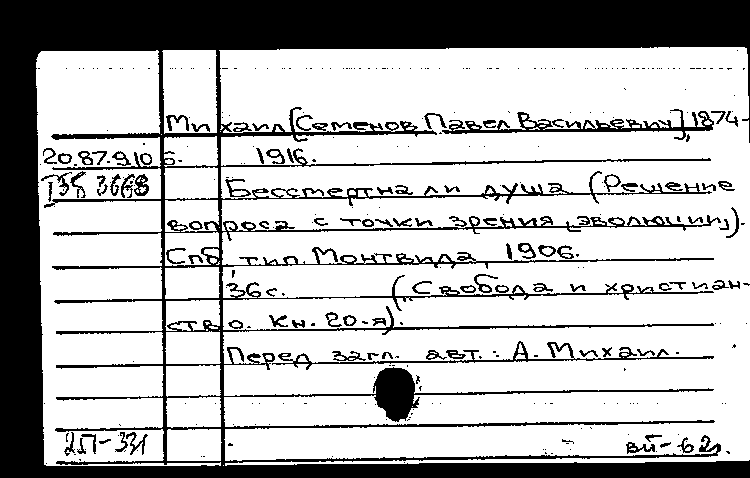 Михаил [Семенов, Павел Васильевич], 1874-
20.87.910 б. 1916.
Бессмертна ли душа (Решение
вопроса с точки зрения „эволюции“).
Спб, тип. Монтвида, 1906.
36 с. („Свобода и христиан-
ство. Кн. 20-я).
Перед загл. авт.: А. Михаил.
25П-331